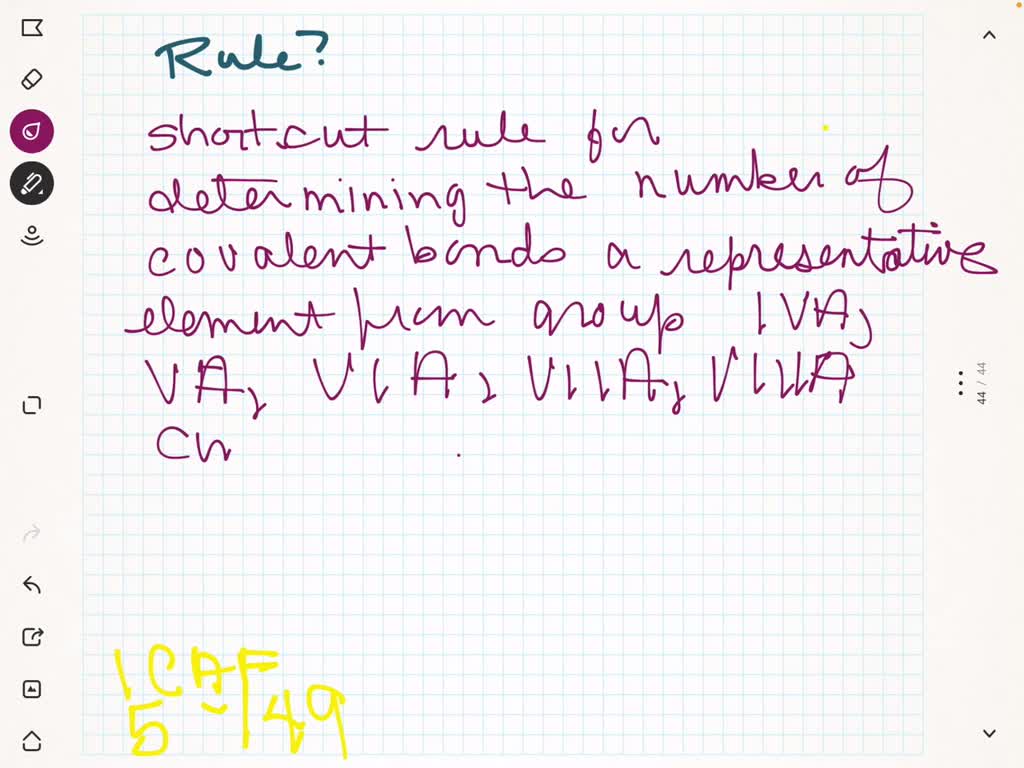 Rule?
shortcut rule for
determining the number of
covalent bonds a representative
element from group IVA,
VA, VIA, VIIA, VIIIA
Ch
44 / 44
ICAF
5 49